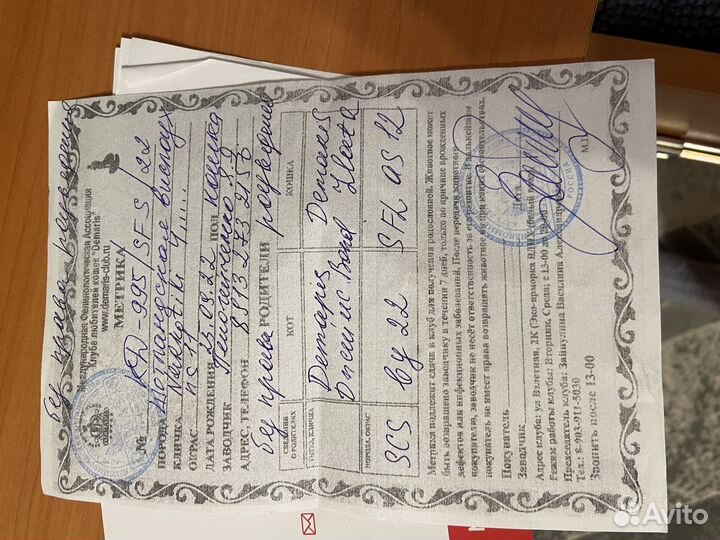 без права разведения
Международная Фелинологическая Ассоциация
Клуба любителей кошек "Demaris"
www.demaris-club.ru
МЕТРИКА
№ КД 995/SFS/22
ПОРОДА Шотландская вислоух
КЛИЧКА
ОКРАС ns 11
ДАТА РОЖДЕНИЯ 22 ПОЛ кошка
ЗАВОДЧИК
АДРЕС, ТЕЛЕФОН 8 913 273 2156
без права разведения
РОДИТЕЛИ
СВЕДЕНИЯ О РОДИТЕЛЯХ КОТ КОШКА
ТИТУЛ, КЛИЧКА Demaris Bond Demaris
ПОРОДА, ОКРАС SCS by 22 SFL as 12
Метрика подлежит сдаче в клуб для получения родословной. Животное может
быть возвращено заводчику в течении 7 дней, только по причине врожденных
дефектов или инфекционных заболеваний. После передачи животного
покупателю, заводчик не несёт ответственность за его развитие. В дальнейшем
покупатель не имеет права возвращать животное ни при каких обстоятельствах.
Покупатель
Заводчик Дата
Адрес клуба: ул Взлетная, 2К (Эко-ярмарка ВДНХ
Режим работы клубы: Вторник, Среда; с 13-00 до
Председатель клуба: Зайнулина Василина Александр М.П.
Тел.: 8-903-911-5030
Звонить после 13-00
Avito